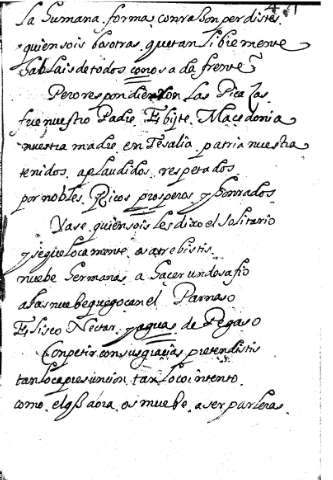 la humana forma con razon perdistes
quien sois bosotras que tan libremente
hablais de todos con osada frente
Pero respondieron las Picaças
fue nuestro Padre Ebijte Macedonia
nuestra madre en Tesalia patria nuestra
tenidos aplaudidos respetados
por nobles Ricos prosperos y honrrados
Ya se quien sois les dixo el Solitario
y se que locamente os atrebistis
nuebe hermanas a haçer un desafio
a las nuebe que goçan el Parnaso
Eliseo Nectar y aguas de Pegaso
Conpetir con sus graçias pretendistis
tan loca presuncion tan loco intento
como el q aora os muebe a ser parleras